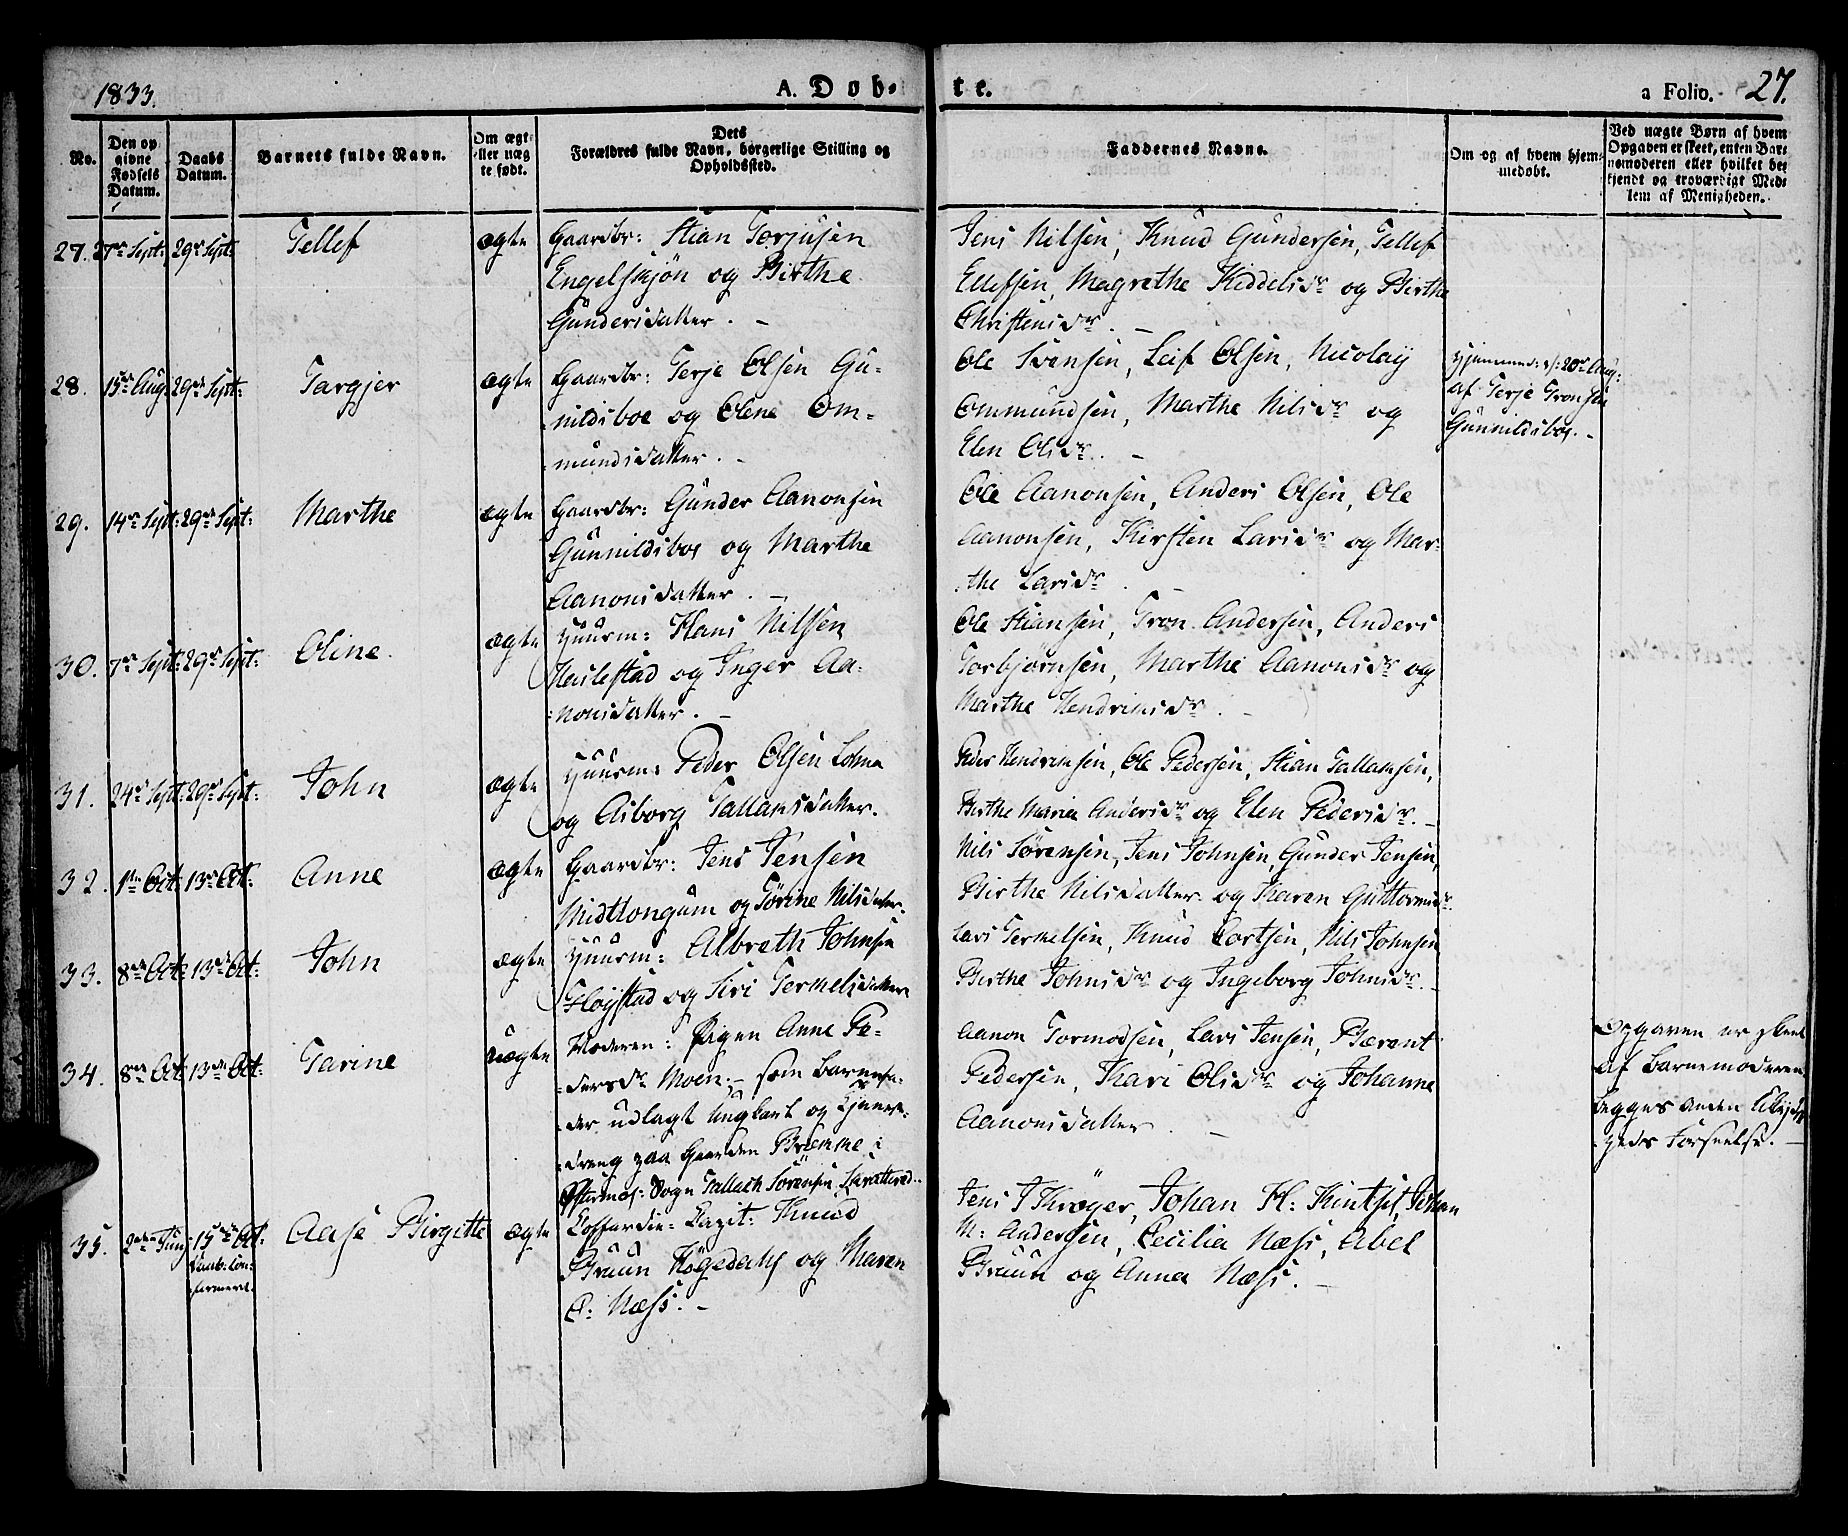 1833.
A. Døbte.
a Folio. 27.
No.
Den opgivne Fødsels Datum.
Daabs Datum.
Barnets fulde Navn.
Om ægte eller uægte født.
Dets Forældres fulde Navn, borgerlige Stilling og Opholdssted.
Faddernes Navne.
Om og af hvem hjemmedøbt.
Ved uægte Børn af hvem Opgaven er skeet, enten Barnemoderen eller hvilket bekjendt og troværdigt Medlem af Menigheden.
27. 27de Sept: 29de Sept: Tellef ægte Gaardbr: Stian Torjusen
Engelskjøn og Birthe
Gundersdatter. –
Jens Nilsen, Knud Gundersen, Tellef
Ellefsen, Magrethe Kiddelsdr og Birthe
Christensdr. –
28. 15de Aug: 29de Sept: Targjer ægte Gaardbr: Terje Olsen Gu-
nildsboe og Olene Om-
mundsdatter. –
Ole Svensen, Leif Olsen, Nicolay
Ommundsen, Marthe Nilsdr og
Elen Olsdr. –
Hjemmed: d: 20de Aug:
af Terje Tronsen
Gunnildsboe. –
29. 14de Sept: 29de Sept: Marthe ægte Gaardbr: Gunder Aanonsen
Gunnildsboe og Marthe
Aanonsdatter. –
Ole Aanonsen, Anders Olsen, Ole
Aanonsen, Kirsten Larsdr og Mar-
the Larsdr. –
30. 7de Sept: 29de Sept: Oline. ægte Huusm: Hans Nilsen
Heilestad og Inger Aa-
nonsdatter. –
Ole Stiansen, Tron Andersen, Anders
Torbjørnsen, Marthe Aanonsdr og
Marthe Hendriksdr. –
31. 24de Sept: 29de Sept: John ægte Huusm: Peder Olsen Lohna
og Asborg Tallaksdatter.
Peder Hendriksen, Ole Pedersen, Stian Tallaksen,
Birthe Maria Andersdr og Elen Pedersdr. –
32. 1ste Oct: 13de Oct: Anne ægte Gaardbr: Jens Jensen
Midtlongum og Sørine Nilsdatter.
Nils Sørensen, Jens Johnsen, Gunder Jensen,
Birthe Nilsdatter og Karen Guttormsdr.
33. 8de Oct: 13de Oct: John ægte Huusm: Albreth Johnsen
Fløystad og Siri Terkelsdatter
Lars Terkelsen, Knud Cortsen, Nils Johnsen
Birthe Johnsdr og Ingeborg Johnsdr. –
34. 8de Oct: 13de Oct: Tarine uægte Moderen: Pigen Anne Pe-
dersdr Moen, – som Barnefa-
der udlagt Ungkarl og Tjeneste-
dreng paa Gaarden Bremme i
Østermos: Sogn Tallach Sörensen
Aanon Tormodsen, Lars Jensen, Bærent
Pedersen, Kari Olsdr og Johanne
Aanonsdatter. –
Opgaven er skeet
af Barnemoderen.
begges anden
Forseelse. –
35. 2den Juny 15de Oct: Aase Birgitte ægte Coffardie: Capit: Knud
Bruun Högedahl og Maren
C: Næss. –
Daab: con-
firmeret.
Jens T Krøger, Johan H: Kintsel, Johan
M: Andersen, Cecilia Næss, Abel
Bruun og Anna Næss. –